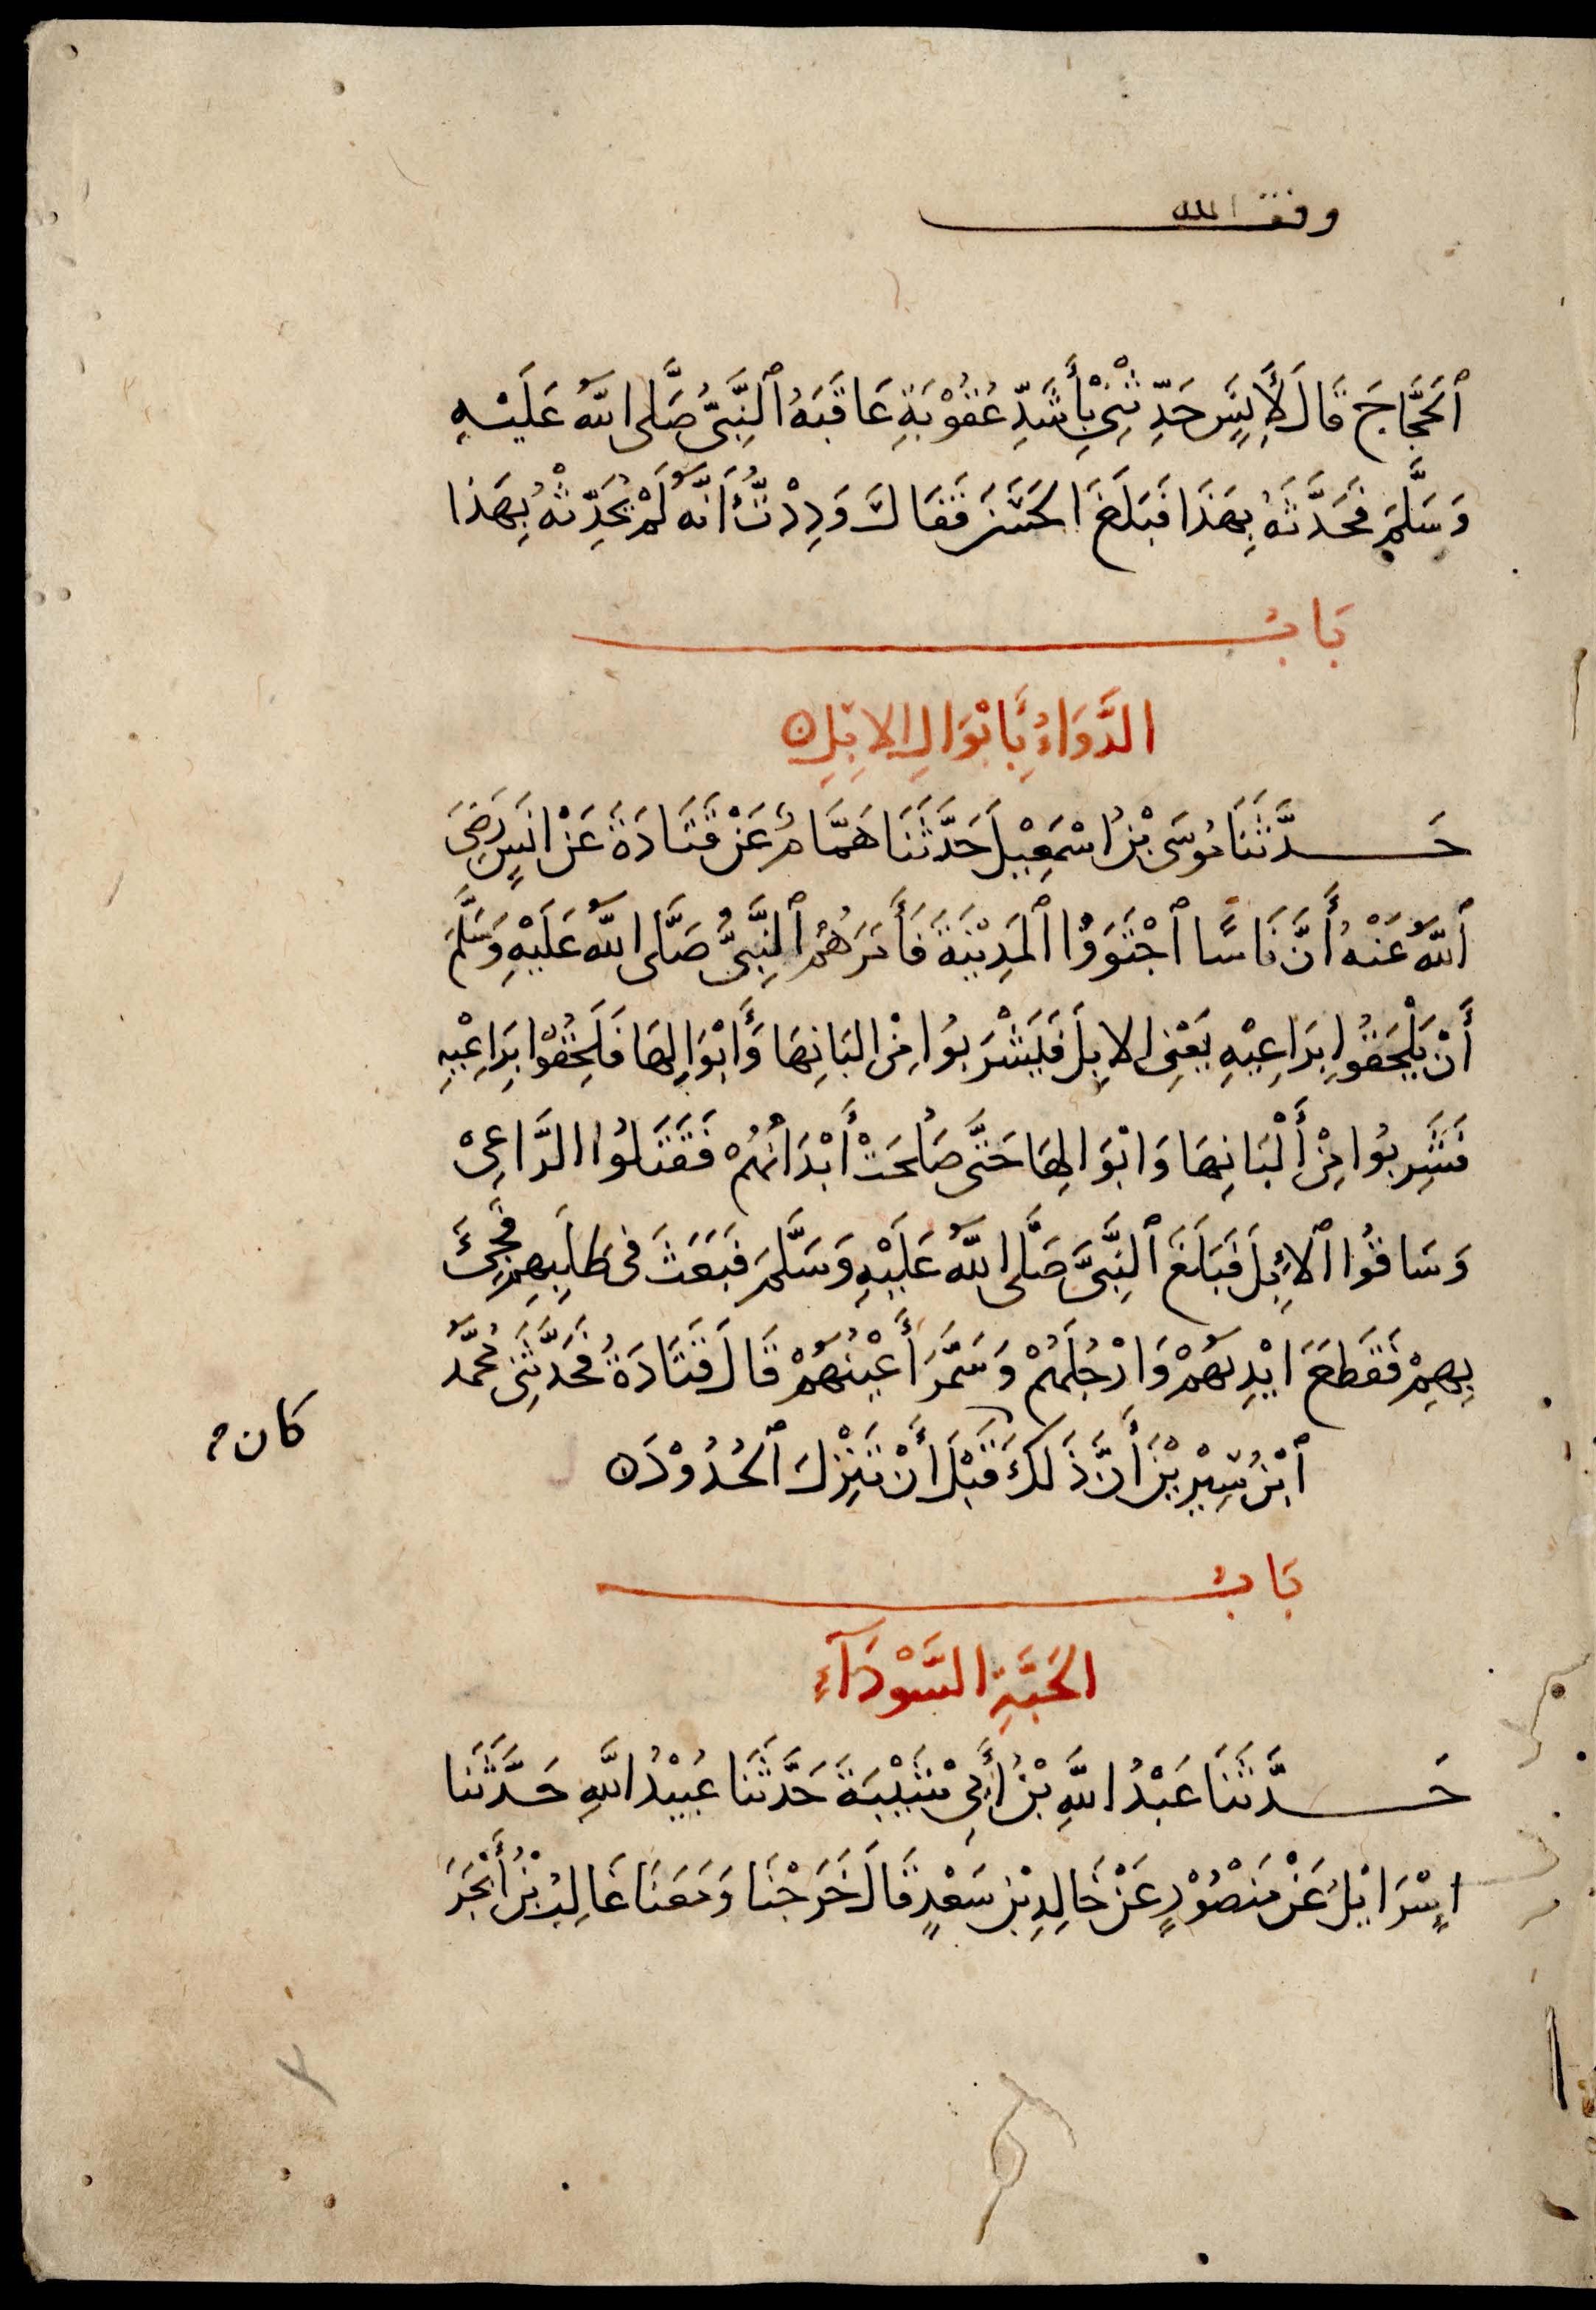 وقف الله
ٱلحَجَّاجَ قَالَ لِأَنَسٍ حَدِّثْنِيْ بِأَشَدِّ عُقُوْبَةٍ عَاقَبَهُ ٱلنَّبِيُّ صَلَّى اللّٰهُ عَلَيْهِ
وَسَلَّمَ فَحَدَّثَهُ بِهَذَا فَبَلَغَ الحَسَنَ فَقَالَ وَدِدْتُ أَنَّهُ لَمْ يُحَدِّثْهُ بِهَذا
بَابُ
الدَّوَاءُ بِأَبْوَالِ الإِبِلِ ه
حَدَّثَنَا مُوسَى بْنُ اسْمٰعِيْلَ حَدَّثَنَا هَمَّامٌ عَنْ قَتَادَةَ عَنْ انَسٍ رَضِيَ
ٱللّٰهُ عَنْهُ أَنَّ نَاسًا ٱجْتَوَوْا ٱلمَدِيْنَةَ فَأَمَرَهُمُ ٱلنَّبِيُّ صَلَّى اللّٰهُ عَلَيْهِ وَسَلَّمَ
أَنْ يَلْحَقُوا بِرَاعِيْهِ يَعْنِي الإِبِلَ فَيَشْرَبُوا مِنْ البَانِهَا وَأَبْوَالِهَا فَلَحِقُوْا بِرَاعِيْهِ
فَشَرِبُوا مِنْ أَلْبَانِهَا وَابْوَالِهَا حَتَّى صَلُحَتْ أَبْدَانُهُمْ فَقَتَلُوْا الرَّاعِيْ
وَسَاقُوْا ٱلإِبِلَ فَبَلَغَ ٱلنَّبِيَّ صَلَّى اللّٰهُ عَلَيْهِ وَسَلَّمَ فَبَعَثَ فى طَلَبِهِم فَجِيْءَ
بِهِمْ فَقَطَعَ ايْدِيَهُمْ وَارْجُلَهُمْ وَسَمَرَ أَعْيُنَهُمْ قَالَ قَتَادَةُ فَحَدَّثَنِى مُحَمَّدُ
ٱبْنُ سِيْرِيْنَ أَنَّ ذَلِكَ قَبْلَ أَنْ تَنْزِلَ ٱلحُدُوْدُ ه
كان
بَابُ
الحَبَّةِ السَّوْدَآءِ
حَدَّثَنَا عَبْدُ اللّٰهِ بْنُ أَبِي شَيْبَةَ حَدَّثَنَا عُبَيْدُ اللّٰهِ حَدَّثَنَا
اِسْرَايْلُ عَنْ مَنْصُوْرٍ عَنْ خَالِدِ بْنِ سَعْدٍ قَالَ خَرَجْنَا وَمَعَنَا غَالِبُ بْنُ أَبْجَرَ